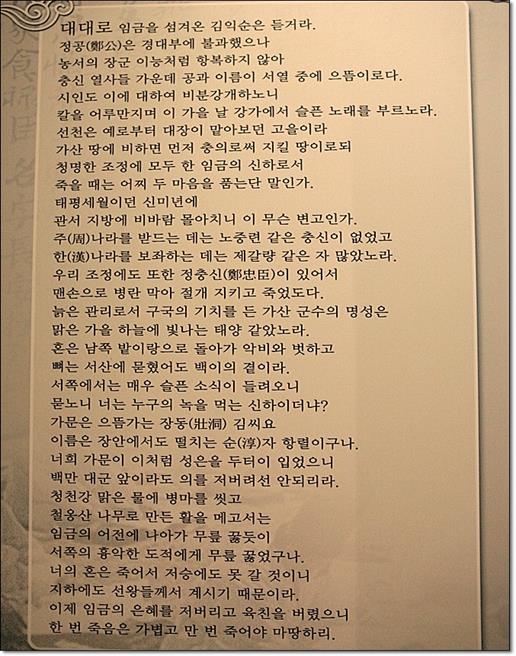 대대로 임금을 섬겨온 김익순은 듣거라.
정공(鄭公)은 경대부에 불과했으나
농서의 장군 이능처럼 항복하지 않아
충신 열사들 가운데 공과 이름이 서열 중에 으뜸이로다.
시인도 이에 대하여 비분강개하노니
칼을 어루만지며 이 가을 날 강가에서 슬픈 노래를 부르노라.
선천은 예로부터 대장이 맡아보던 고을이라
가산 땅에 비하면 먼저 충의로써 지킬 땅이로되
청명한 조정에 모두 한 임금의 신하로서
죽을 때는 어찌 두 마음을 품는단 말인가.
태평세월이던 신미년에
관서 지방에 비바람 몰아치니 이 무슨 변고인가.
주(周)나라를 받드는 데는 노중련 같은 충신이 없었고
한(漢)나라를 보좌하는 데는 제갈량 같은 자 많았노라.
우리 조정에도 또한 정충신(鄭忠臣)이 있어서
맨손으로 병란 막아 절개 지키고 죽었도다.
늙은 관리로서 구국의 기치를 든 가산 군수의 명성은
맑은 가을 하늘에 빛나는 태양 같았노라.
혼은 남쪽 밭이랑으로 돌아가 악비와 벗하고
뼈는 서산에 묻혔어도 백이의 곁이라.
서쪽에서는 매우 슬픈 소식이 들려오니
묻노니 너는 누구의 녹을 먹는 신하이더냐?
가문은 으뜸가는 장동(壯洞) 김씨요
이름은 장안에서도 떨치는 순(淳)자 항렬이구나.
너희 가문이 이처럼 성은을 두터이 입었으니
백만 대군 앞이라도 의를 저버려선 안되리라.
청천강 맑은 물에 병마를 씻고
철옹산 나무로 만든 활을 메고서는
임금의 어전에 나아가 무릎 꿇듯이
서쪽의 흉악한 도적에게 무릎 꿇었구나.
너의 혼은 죽어서 저승에도 못 갈 것이니
지하에도 선왕들께서 계시기 때문이라.
이제 임금의 은혜를 저버리고 육친을 버렸으니
한 번 죽음은 가볍고 만 번 죽어야 마땅하리.